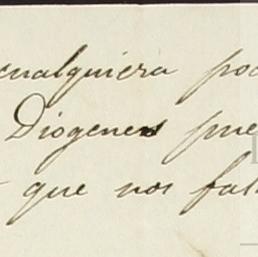 cualquiera po
Diogenes pue
que nos fal